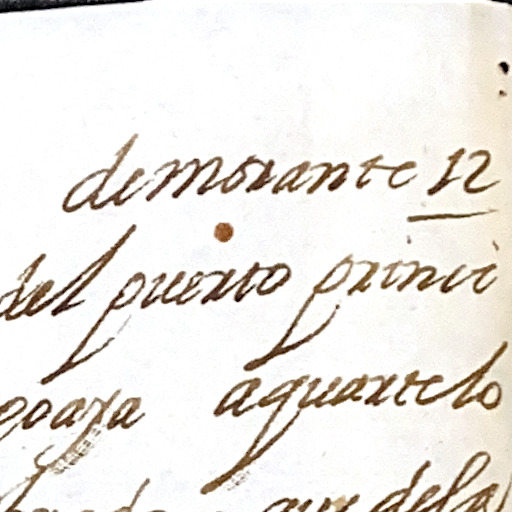 demorante 12
del puerto princi
goaya aquartelo
que dela